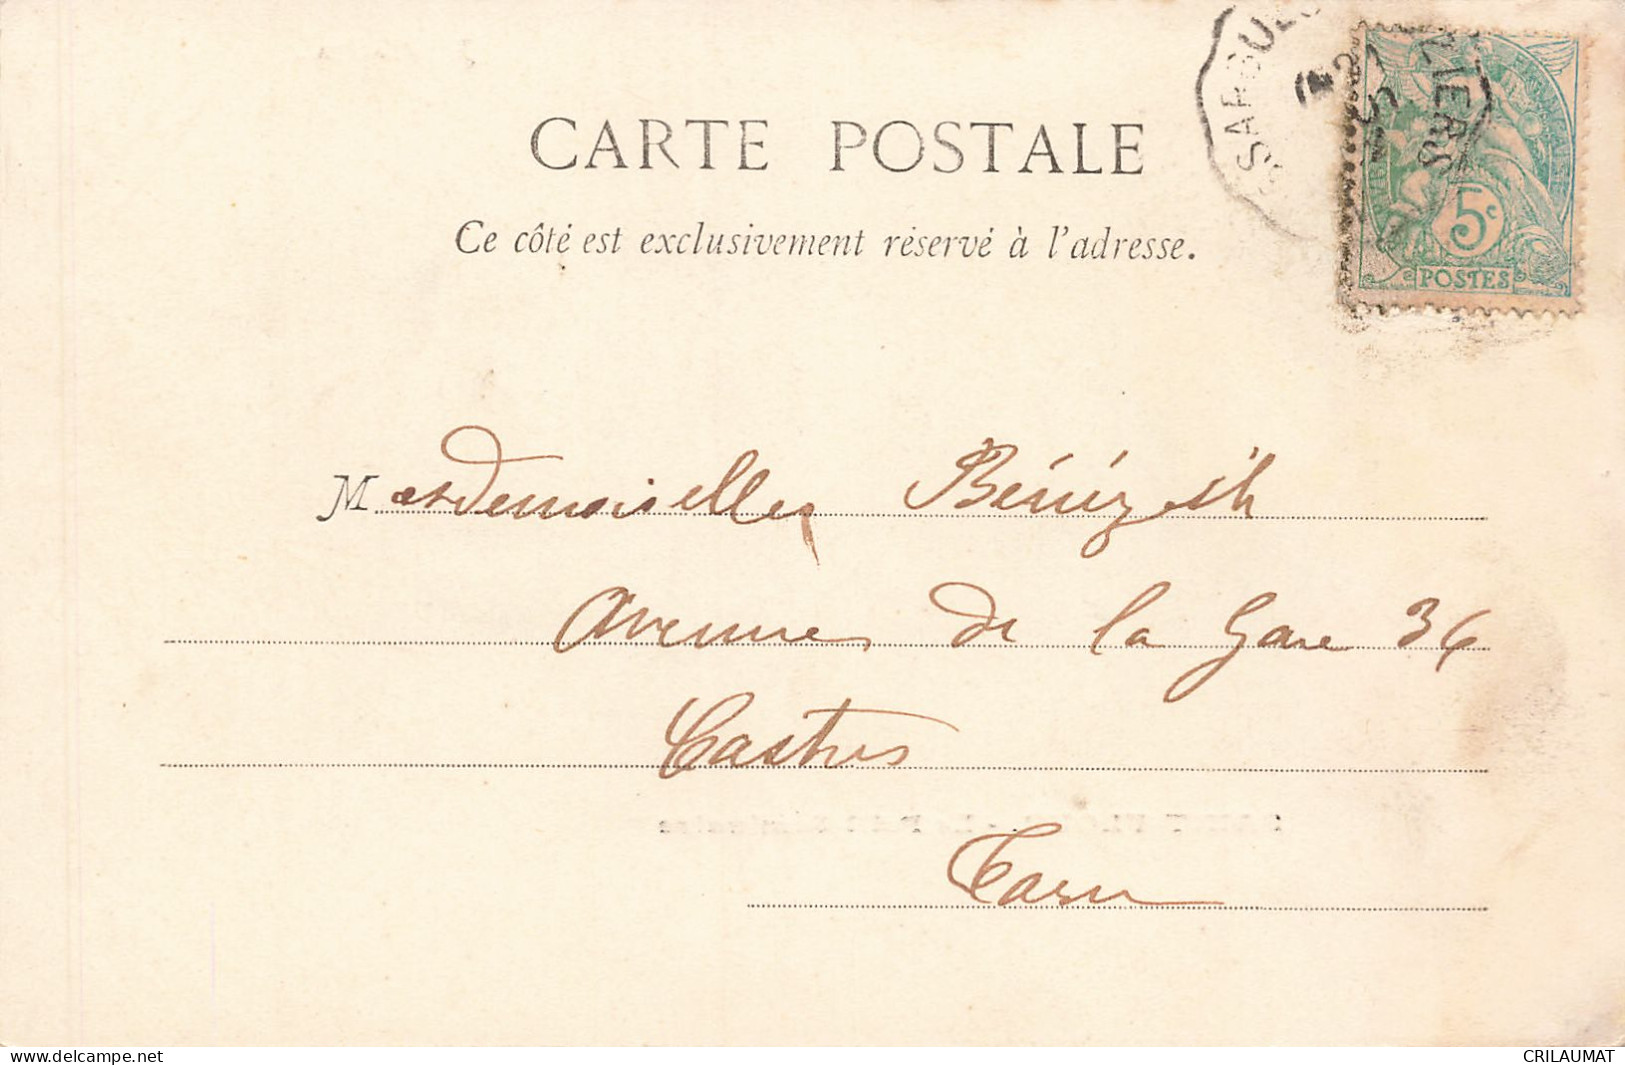 CARTE POSTALE
Ce côté est exclusivement réservé à l'adresse.
5c
POSTES
Mesdemoiselles Bénézech
Avenue de la Gare 36
Castres
Tarn
www.delcampe.net
CRILAUMAT